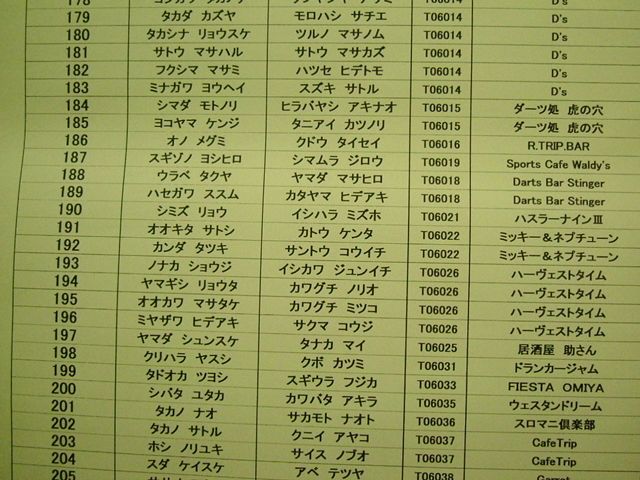 178 T06014 D's
179 タカダ カズヤ モロハシ サチエ T06014 D's
180 タカシナ リョウスケ ツルノ マサノム T06014 D's
181 サトウ マサハル サトウ マサカズ T06014 D's
182 フクシマ マサミ ハツセ ヒデトモ T06014 D's
183 ミナガワ ヨウヘイ スズキ サトル T06014 D's
184 シマダ モトノリ ヒラバヤシ アキナオ T06015 ダーツ処 虎の穴
185 ヨコヤマ ケンジ タニアイ カツノリ T06015 ダーツ処 虎の穴
186 オノ メグミ クドウ タイセイ T06016 R.TRIP.BAR
187 スギゾノ ヨシヒロ シマムラ ジロウ T06019 Sports Cafe Waldy's
188 ウラベ タクヤ ヤマダ マサヒロ T06018 Darts Bar Stinger
189 ハセガワ ススム カタヤマ ヒデアキ T06018 Darts Bar Stinger
190 シミズ リョウ イシハラ ミズホ T06021 ハスラーナインⅢ
191 オオキタ サトシ カトウ ケンタ T06022 ミッキー＆ネプチューン
192 カンダ タツキ サントウ コウイチ T06022 ミッキー＆ネプチューン
193 ノナカ ショウジ イシカワ ジュンイチ T06026 ハーヴェストタイム
194 ヤマギシ リョウタ カワグチ ノリオ T06026 ハーヴェストタイム
195 オオカワ マサタケ カワグチ ミツコ T06026 ハーヴェストタイム
196 ミヤザワ ヒデアキ サクマ コウジ T06026 ハーヴェストタイム
197 ヤマダ シュンスケ タナカ マイ T06025 居酒屋 助さん
198 クリハラ ヤスシ クボ カツミ T06031 ドランカージャム
199 タドオカ ツヨシ スギウラ フジカ T06033 FIESTA OMIYA
200 シバタ ユタカ カワバタ アキラ T06035 ウェスタンドリーム
201 タカノ ナオ サカモト ナオト T06036 スロマニ倶楽部
202 タカノ サトル クニイ アヤコ T06037 CafeTrip
203 ホシ ノリユキ サイス ノブオ T06037 CafeTrip
204 スダ ケイスケ アベ テツヤ T06038
205